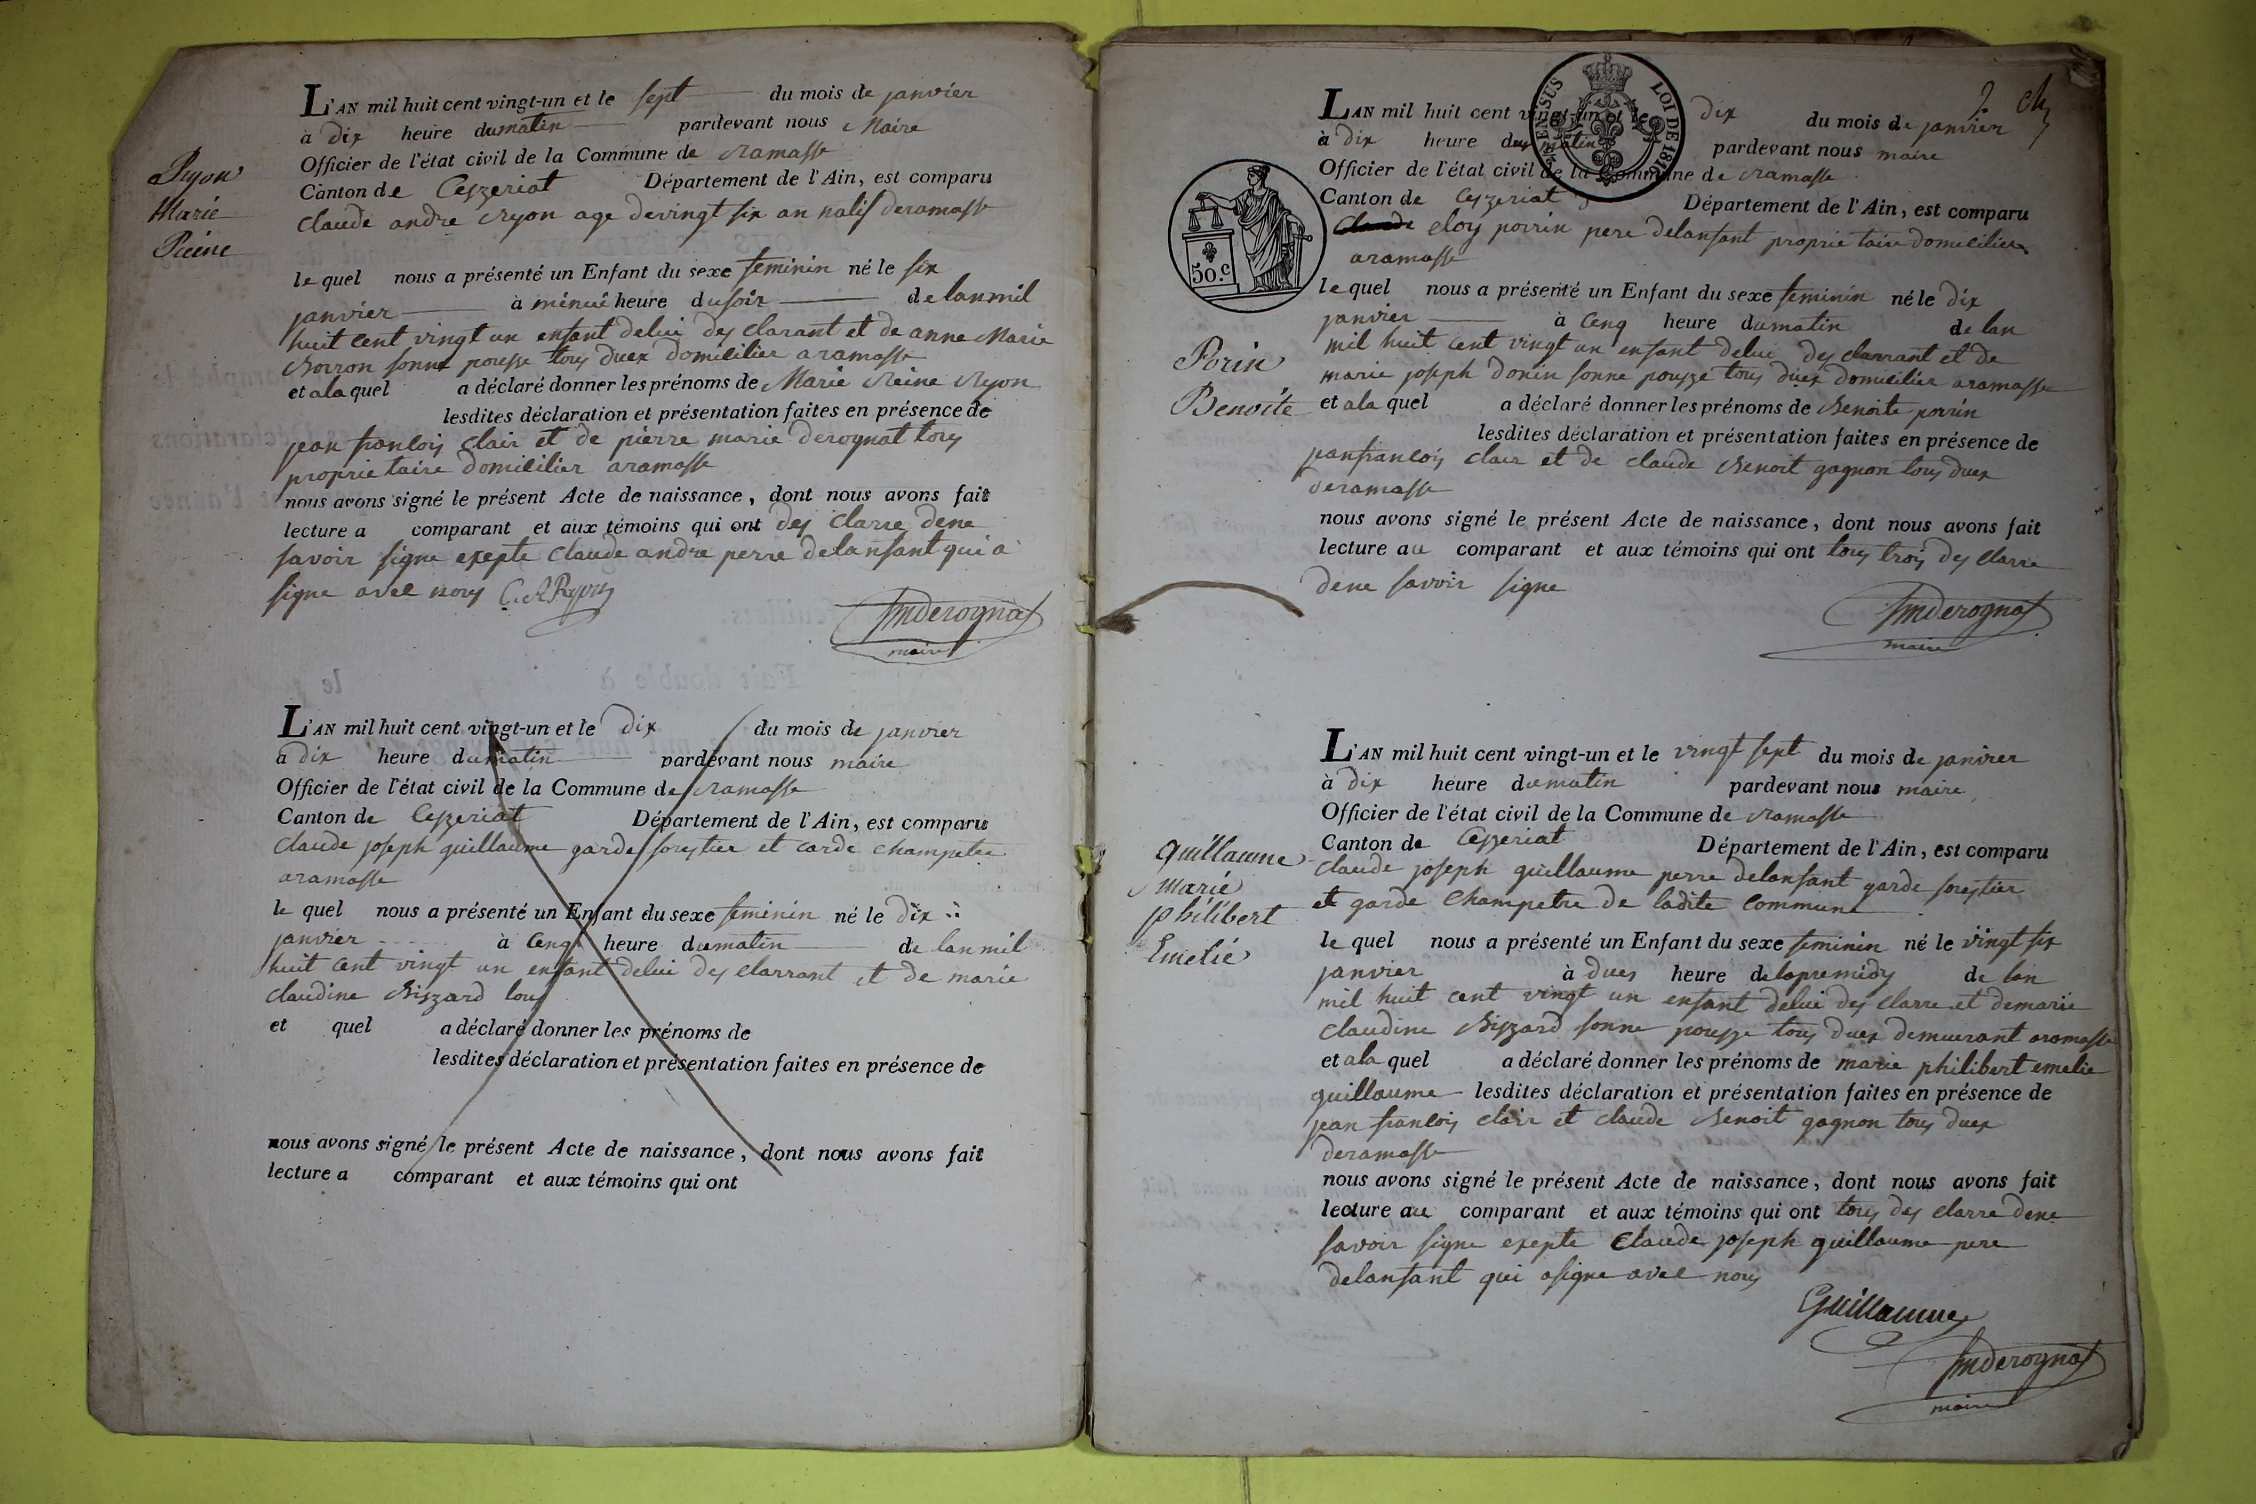 L'AN mil huit cent vingt-un et le sept du mois de janvier
à dix heure du matin pardevant nous Maire
Officier de l'état civil de la Commune de ramasse
Canton de Ceyzeriat Département de l'Ain, est comparu
Claude andre ryon age de vingt six an natif deramasse
Ryon
Marie
Reine
le quel nous a présenté un Enfant du sexe feminin né le six
janvier à menui heure du soir de lan mil
huit cent vingt un enfant delui des clarant et de anne Marie
sonne pousse tous duex domicilier a ramasse
et a la quel a déclaré donner les prénoms de Marie reine ryon
lesdites déclaration et présentation faites en présence de
jean francois clair et de pierre marie derognat tous
proprietaire domicilier aramasse
nous avons signé le présent Acte de naissance, dont nous avons fait
lecture a comparant et aux témoins qui ont des clarre dene
savoir signe exepte claude andre perre delansant qui a
signe avec nous C. A Ryon
Jmderognat
maire
L'AN mil huit cent vingt-un et le dix du mois de janvier
à dix heure du matin pardevant nous maire
Officier de l'état civil de la Commune de ramasse
Canton de Ceyzeriat Département de l'Ain, est comparu
claude joseph guillaume garde forestier et carde champetre
aramasse
le quel nous a présenté un Enfant du sexe feminin né le dix
janvier à cenq heure du matin de lan mil
huit cent vingt un enfant delui des clarrant et de marie
claudine Biszard tous
et quel a déclaré donner les prénoms de
lesdites déclaration et présentation faites en présence de
nous avons signé le présent Acte de naissance, dont nous avons fait
lecture a comparant et aux témoins qui ont
2
TIMBRE EN SUS LOI DE 1816
50.c
L'AN mil huit cent vingt-un et le dix du mois de janvier
à dix heure du matin pardevant nous maire
Officier de l'état civil de la Commune de ramasse
Canton de Ceyzeriat Département de l'Ain, est comparu
Claude eloy porrin pere delansant proprietaire domicilier
aramasse
le quel nous a présenté un Enfant du sexe feminin né le dix
janvier à cenq heure du matin de lan
mil huit cent vingt un enfant delui des clarrant et de
marie joseph donin sonne pousze tous duex domicilier aramasse
Porin
Benoite
et a la quel a déclaré donner les prénoms de Benoite porrin
lesdites déclaration et présentation faites en présence de
janfrancois clair et de claude Benoit gagnon tous duex
deramasse
nous avons signé le présent Acte de naissance, dont nous avons fait
lecture au comparant et aux témoins qui ont tous trois des clarre
dene savoir signe
Jmderognat
maire
L'AN mil huit cent vingt-un et le vingt sept du mois de janvier
à dix heure du matin pardevant nous maire
Officier de l'état civil de la Commune de ramasse
Canton de Ceyzeriat Département de l'Ain, est comparu
claude joseph guillaume perre delansant garde forestier
et garde champetre de ladite commune
guillaume
marie
philibert
Emelie
le quel nous a présenté un Enfant du sexe feminin né le vingt six
janvier à dues heure de lapremidy de lan
mil huit cent vingt un enfant delui des clarre et demarie
claudine Biszard sonne pousze tous duex demeurant aramasse
et a la quel a déclaré donner les prénoms de marie philibert emelie
guillaume lesdites déclaration et présentation faites en présence de
jean francois clair et claude Benoit gagnon tous duex
deramasse
nous avons signé le présent Acte de naissance, dont nous avons fait
lecture au comparant et aux témoins qui ont tous des clarre dene
savoir signe exepte claude joseph guillaume pere
delansant qui asigne avec nous
Guillaume
Jmderognat
maire